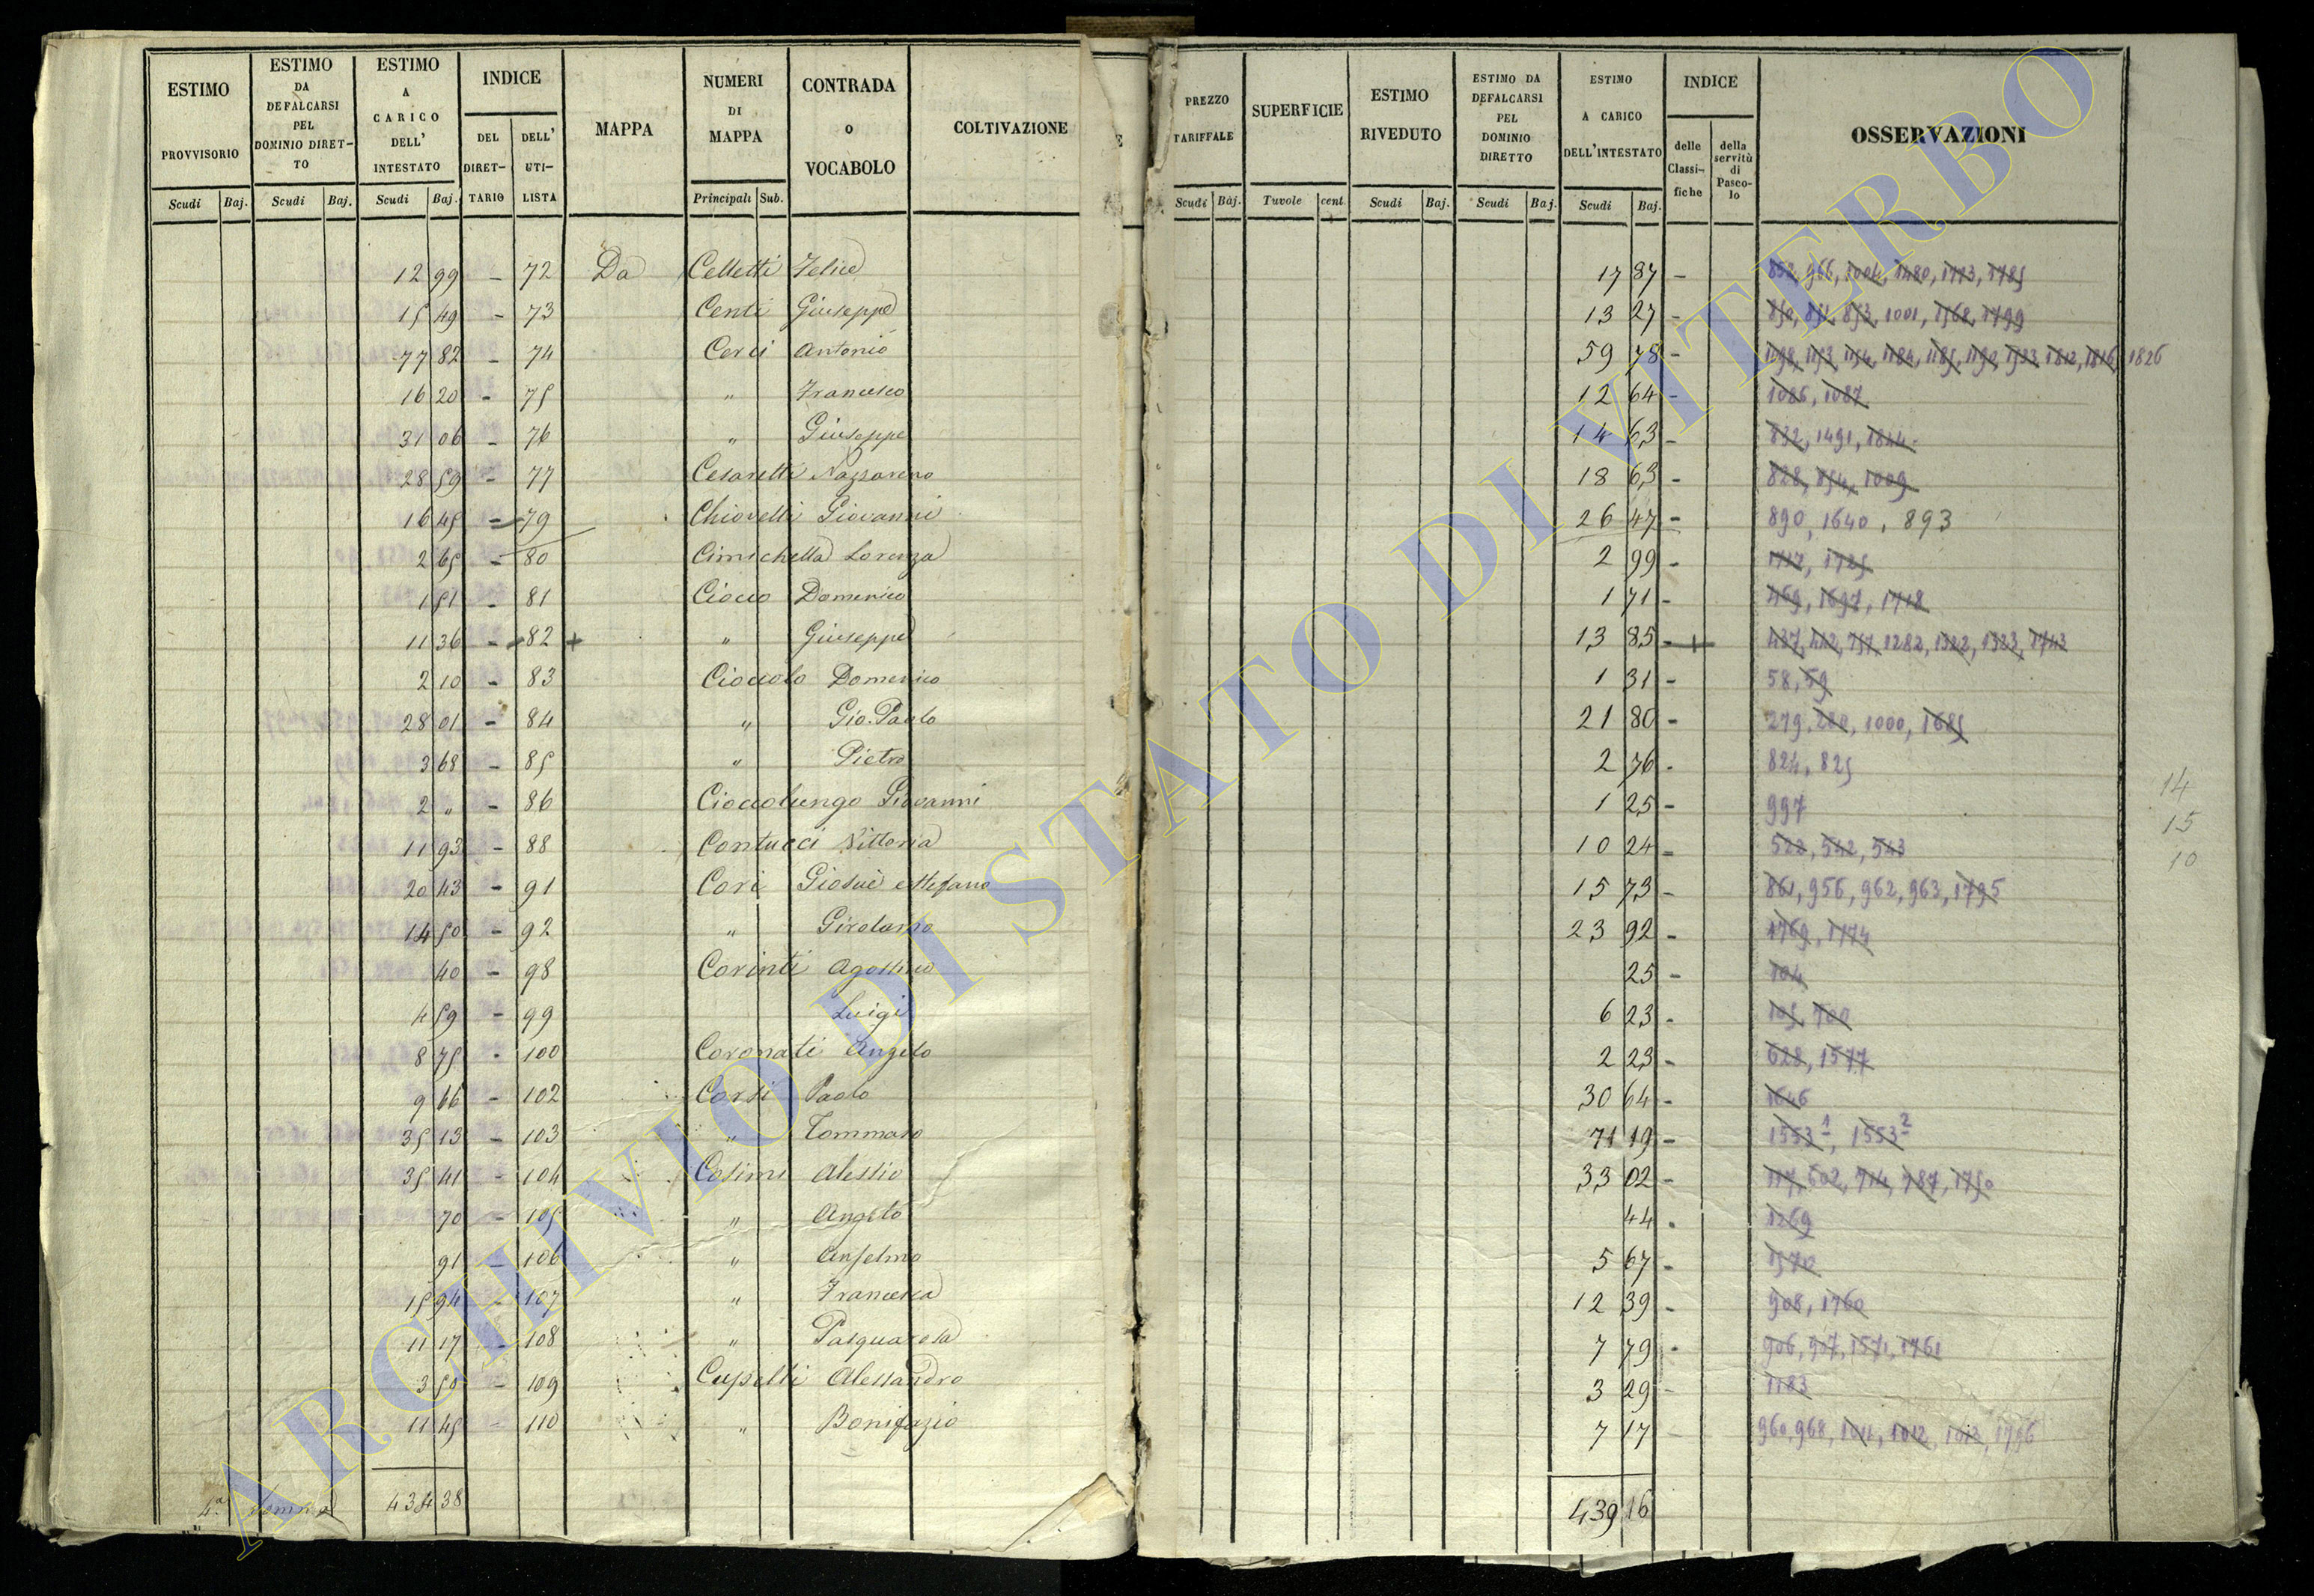 ESTIMO PROVVISORIO | ESTIMO DA DEFALCARSI PEL DOMINIO DIRETTO | ESTIMO A CARICO DELL' INTESTATO | INDICE DEL DIRETTARIO | DELL' UTILISTA | MAPPA | NUMERI DI MAPPA | CONTRADA O VOCABOLO | COLTIVAZIONE | PREZZO TARIFFALE | SUPERFICIE | ESTIMO RIVEDUTO | ESTIMO DA DEFALCARSI PEL DOMINIO DIRETTO | ESTIMO A CARICO DELL'INTESTATO | INDICE delle Classifiche | della servitù di Pascolo | OSSERVAZIONI
Scudi Baj. | Scudi Baj. | Scudi Baj. | Principali Sub. | Scudi Baj. | Tavole cent. | Scudi Baj. | Scudi Baj. | Scudi Baj.
12 99 - 72 Da Celletti Felice 17 87 - 852, 966, 1004, 1480, 1773, 1785
15 49 - 73 Centi Giuseppe 13 27 - 850, 851, 853, 1001, 1568, 1799
77 82 - 74 Cerci Antonio 59 78 - 1153, 1154, 1184, 1185, 1190, 1812, 1816, 1826
16 20 - 75 " Francesco 12 64 - 1086, 1087
31 06 - 76 " Giuseppe 14 63 - 832, 1491, 1844
28 59 - 77 Cesaretti Nazzareno 18 63 - 828, 854, 1009
16 45 - 79 Chiovelli Giovanni 26 47 - 890, 1640, 893
2 65 - 80 Cimichella Lorenza 2 99 - 1717, 1725
1 51 - 81 Ciocco Domenico 1 71 - 469, 1697, 1718
11 36 - 82 + " Giuseppe 13 85 - + 437, 442, 757, 1282, 1322, 1323, 1743
2 10 - 83 Cioccolo Domenico 1 31 - 58, 59
28 01 - 84 " Gio. Paolo 21 80 - 279, 280, 1000, 1685
3 68 - 85 " Pietro 2 76 - 824, 825
2 " - 86 Cioccolungo Giovanni 1 25 - 997
14
15
10
11 93 - 88 Contucci Vittoria 10 24 - 522, 542, 543
20 43 - 91 Cori Giosuè e Stefano 15 73 - 861, 956, 962, 963, 1795
14 50 - 92 " Girolamo 23 92 - 1769, 1774
40 - 98 Corinti Agostino 25 - 104
4 59 - 99 Luigi 6 23 - 105, 700
8 75 - 100 Coronati Angelo 2 23 - 628, 1577
9 66 - 102 Corsi Paolo 30 64 - 1646
35 13 - 103 " Tommaso 71 19 - 1553 1, 1553 2
35 41 - 104 Cosimi Alessio 33 02 - 117, 602, 714, 787, 1750
70 - 105 " Angelo 44 - 1269
91 - 106 " Anselmo 5 67 - 1570
15 94 - 107 " Francesca 12 39 - 908, 1760
11 17 - 108 " Pasquarosa 7 79 - 906, 907, 1571, 1761
3 50 - 109 Cupelli Alessandro 3 29 - 1183
11 45 - 110 " Bonifazio 7 17 - 960, 968, 1011, 1012, 1013, 1796
4.a Somma 434 38 439 16
ARCHIVIO DI STATO DI VITERBO